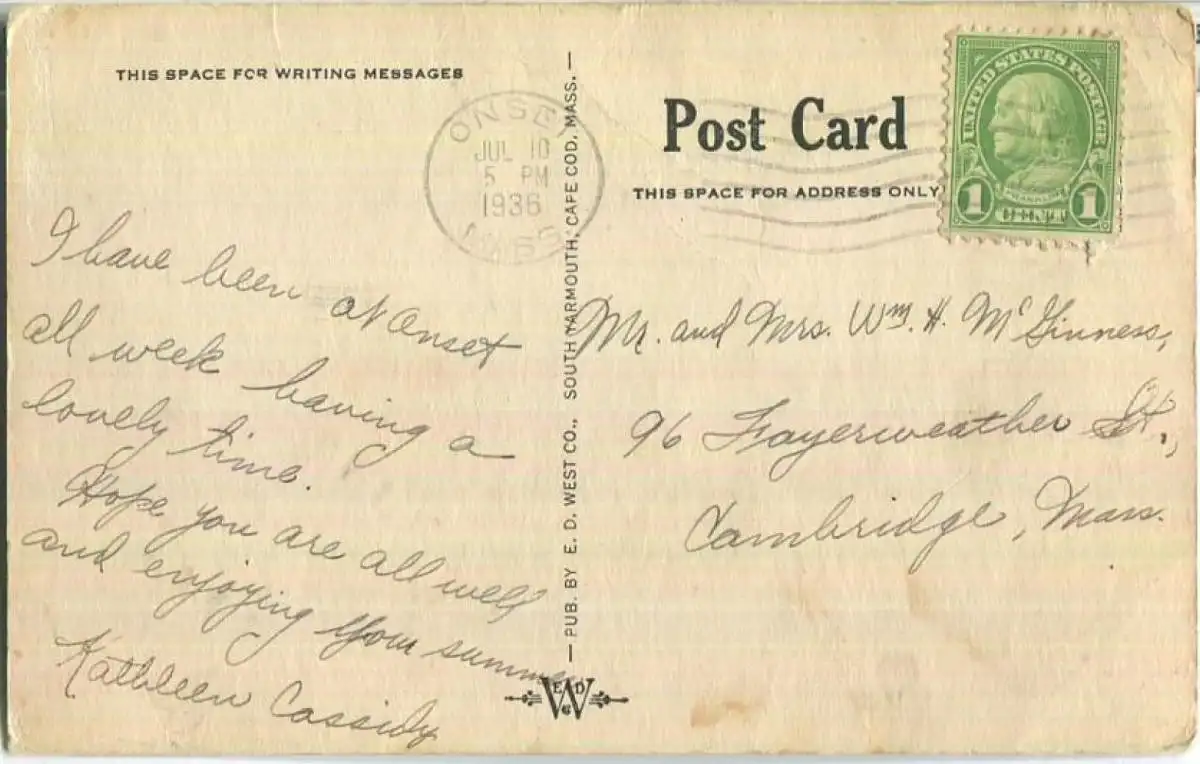 THIS SPACE FOR WRITING MESSAGES
ONSET
JUL 10
5 PM
1936
MASS
I have been at Onset
all week having a
lovely time.
Hope you are all well
and enjoying your summer
Kathleen Cassidy
PUB. BY E. D. WEST CO., SOUTH YARMOUTH, CAPE COD, MASS.
E D W Co
Post Card
THIS SPACE FOR ADDRESS ONLY
UNITED STATES POSTAGE
FRANKLIN
1 CENT 1
Mr. and Mrs. Wm. H. McGinness,
96 Fayerweather St.,
Cambridge, Mass.